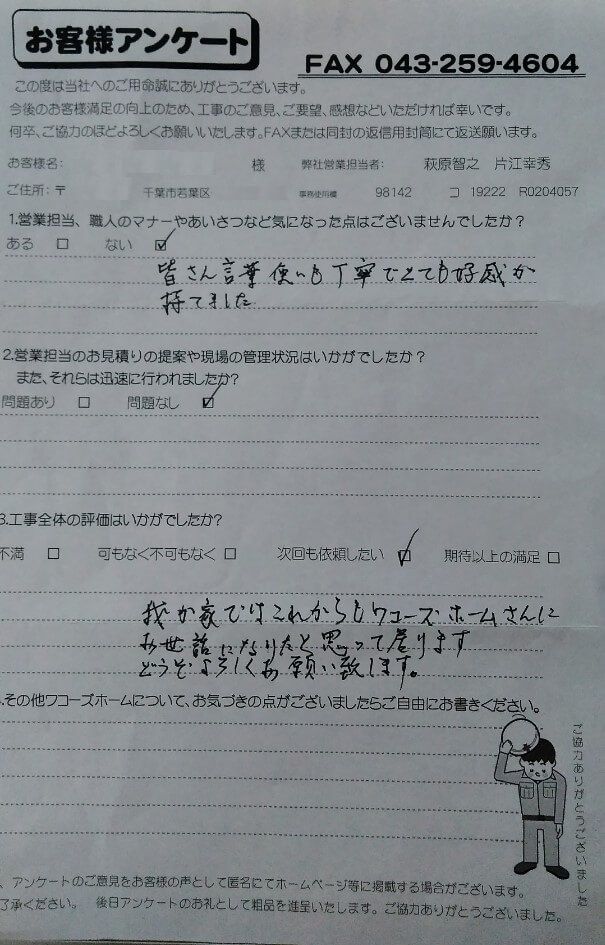 お客様アンケート
FAX 043-259-4604
この度は当社へのご用命誠にありがとうございます。
今後のお客様満足の向上のため、工事のご意見、ご要望、感想などいただければ幸いです。
何卒、ご協力のほどよろしくお願いいたします。FAXまたは同封の返信用封筒にて返送願います。
お客様名: 様 弊社営業担当者: 萩原智之 片江幸秀
ご住所:〒 千葉市若葉区 事務使用欄 98142 コ 19222 R0204057
1.営業担当、職人のマナーやあいさつなど気になった点はございませんでしたか?
ある □ ない ☑
皆さん言葉使いも丁寧でとても好感が
持てました
2.営業担当のお見積りの提案や現場の管理状況はいかがでしたか?
また、それらは迅速に行われましたか?
問題あり □ 問題なし ☑
3.工事全体の評価はいかがでしたか?
不満 □ 可もなく不可もなく □ 次回も依頼したい ☑ 期待以上の満足 □
我が家ではこれからもワコーズホームさんに
お世話になりたと思って居ります
どうぞよろしくお願い致します。
.その他ワコーズホームについて、お気づきの点がございましたらご自由にお書きください。
ご協力ありがとうございました
、アンケートのご意見をお客様の声として匿名にてホームページ等に掲載する場合がございます。
了承ください。 後日アンケートのお礼として粗品を進呈いたします。ご協力ありがとうございました。